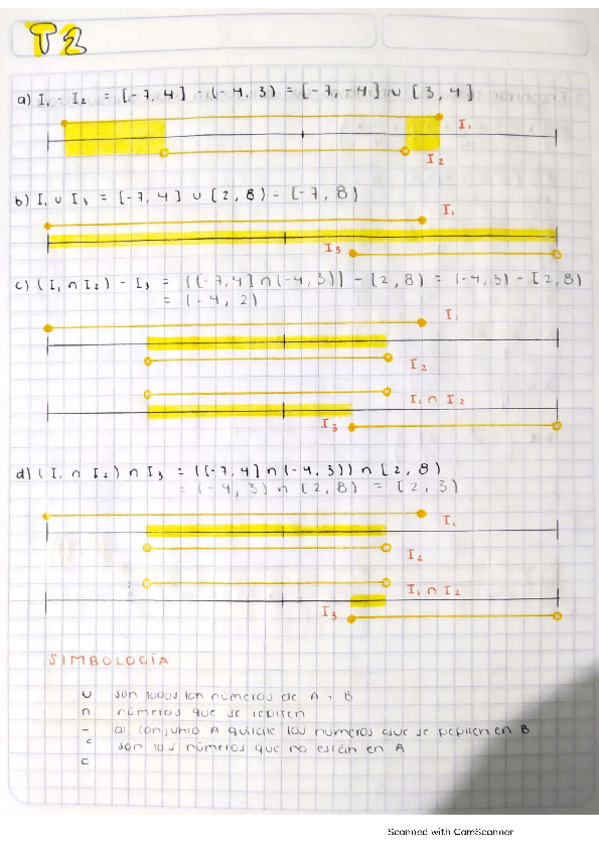 T2
a) I₁ - I₂ = [-7, 4] - (-4, 3) = [-7, -4] ∪ [3, 4]
I₁
I₂
b) I₁ ∪ I₃ = [-7, 4] ∪ [2, 8) - [-7, 8)
I₁
I₃
c) (I₁ ∩ I₂) - I₃ = ([-7, 4] ∩ (-4, 3)) - [2, 8) = (-4, 3) - [2, 8)
= (-4, 2)
I₁
I₂
I₁ ∩ I₂
I₃
d) (I₁ ∩ I₂) ∩ I₃ = ([-7, 4] ∩ (-4, 3)) ∩ [2, 8)
= (-4, 3) ∩ [2, 8) = [2, 3)
I₁
I₂
I₁ ∩ I₂
I₃
SIMBOLOGÍA
∪ son todos los números de A + B
∩ números que se repiten
- al conjunto A quitale los números que se repiten en B
c son los números que no están en A
c
Scanned with CamScanner